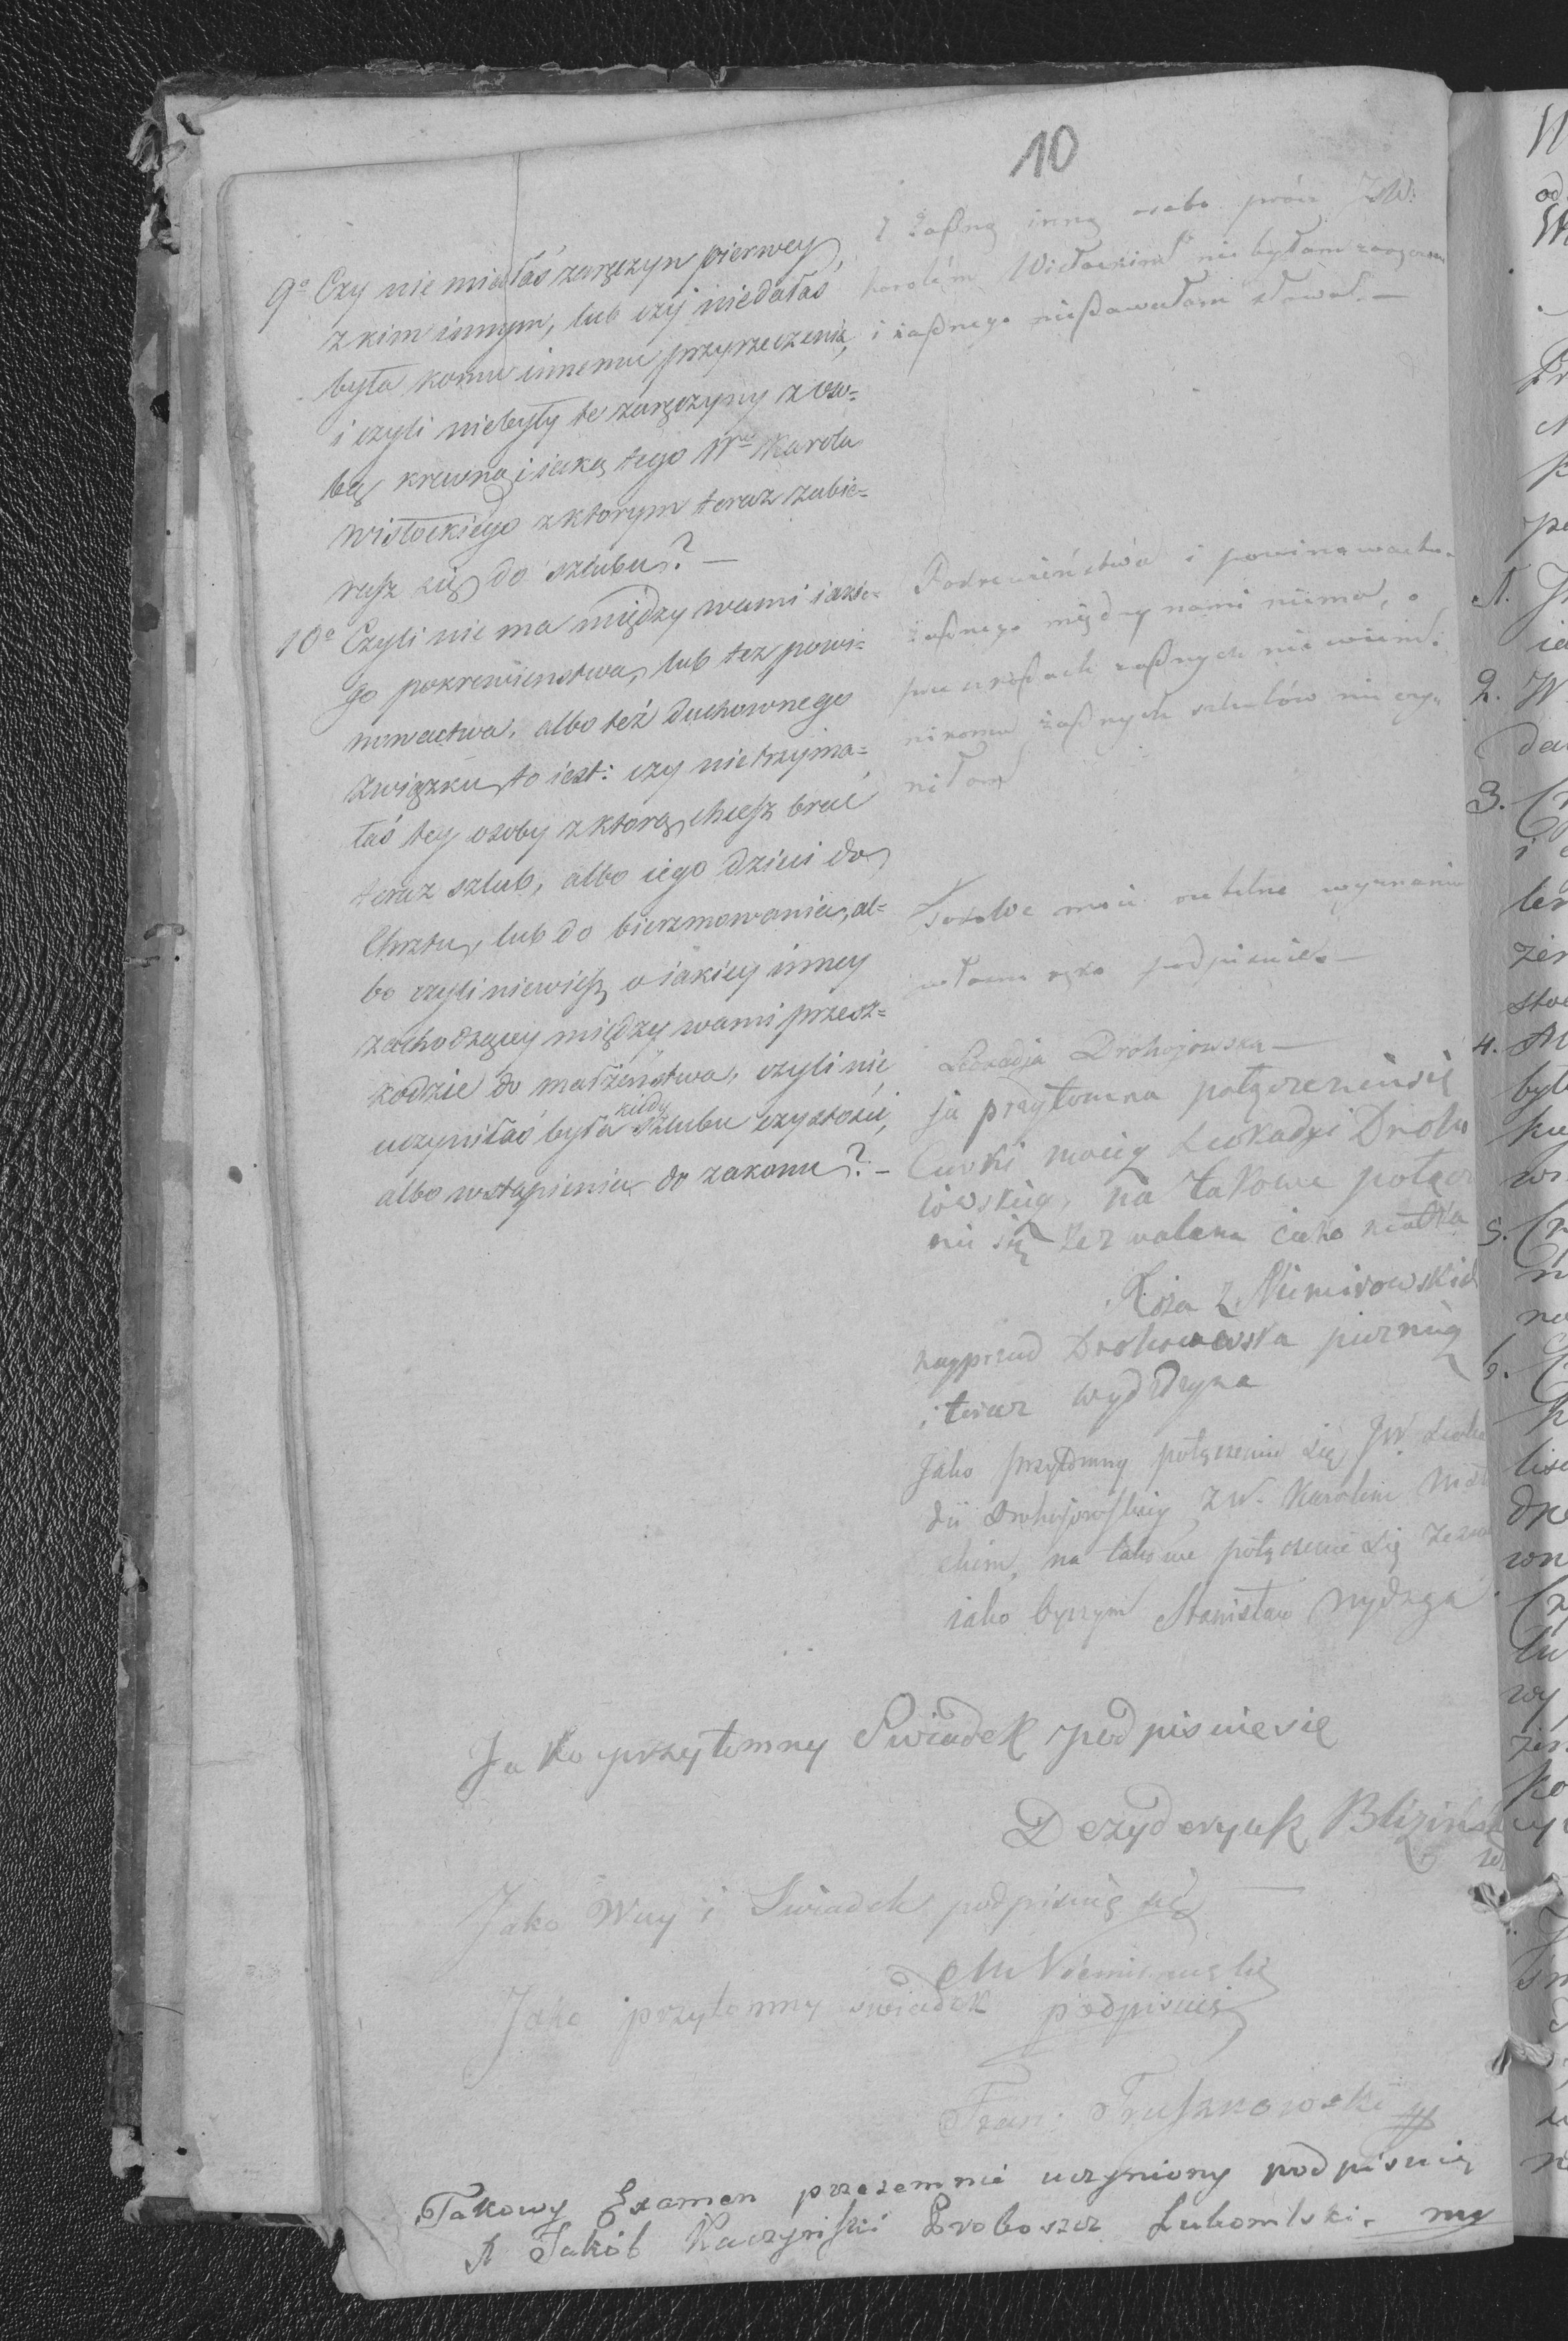 10
9º Czy nie miałaś zaręczyn pierwey
z kim innym, lub czyj niedałaś
była komu innemu przyrzeczenia,
i czyli niebyły te zaręczyny z oso=
bą krewną iaką tego Wº Karola
Wisłockiego z ktorym teraz zabie=
rasz się do szlubu? —
10º Czyli nie ma między wami iakie=
go pokrewienstwa, lub tez powi=
nowactwa, albo też duchownego
związku, to iest: czy nietrzyma=
łaś tey osoby z ktorą chcesz brać
teraz szlub, albo iego dzieci do
Chrztu, lub do bierzmowania, al=
bo czyli niewiesz o iakiey inney
zachodzącey między wami przesz=
kodzie do małżeństwa, czyli nie
uczyniłaś była kiedy szlubu czystości,
albo wstąpienia do zakonu? —
Z żadną inną osobą prócz JW:
Karolem Wisłockim nie byłam
i żadnego niedawałam słowa. —
Pokrewieństwa i powinowactwa
żadnego między nami niema, o
przeszkodach żadnych nie wiem i
nikomu żadnych szlubów nie czy=
niłam
Takowe moie zeznanie
własną ręką podpisuię. —
Leokadja Drohojowska —
ja przytomna połączeniusię
Curki moiey Leokadyi Droho
iowskiey, na takowe połącz
nie się zezwalam iako matka
Róża z Niemirowskich
nayprzud Drohoiowska pierwiey
i teraz Wydzdzyna
Jako przytomny połączeniu się JW. Leoka
dii Drohojowskiey z W. Karolem Wisło
ckim, na takowe połączenie się zezwa
iako oyczym Stanisław
Jako przytomny Swiadek podpisuiesię
Dezyderyusz Bliziński
Jako Wuy i Swiadek podpisuię się
M Niemirowski
Jako przytomny swiadek podpisuię
Fran: Truszkowski
Takowy Examen przezemnie uczyniony podpisuię
X Jakób Kaczyński Proboszcz Lubomlski. mp